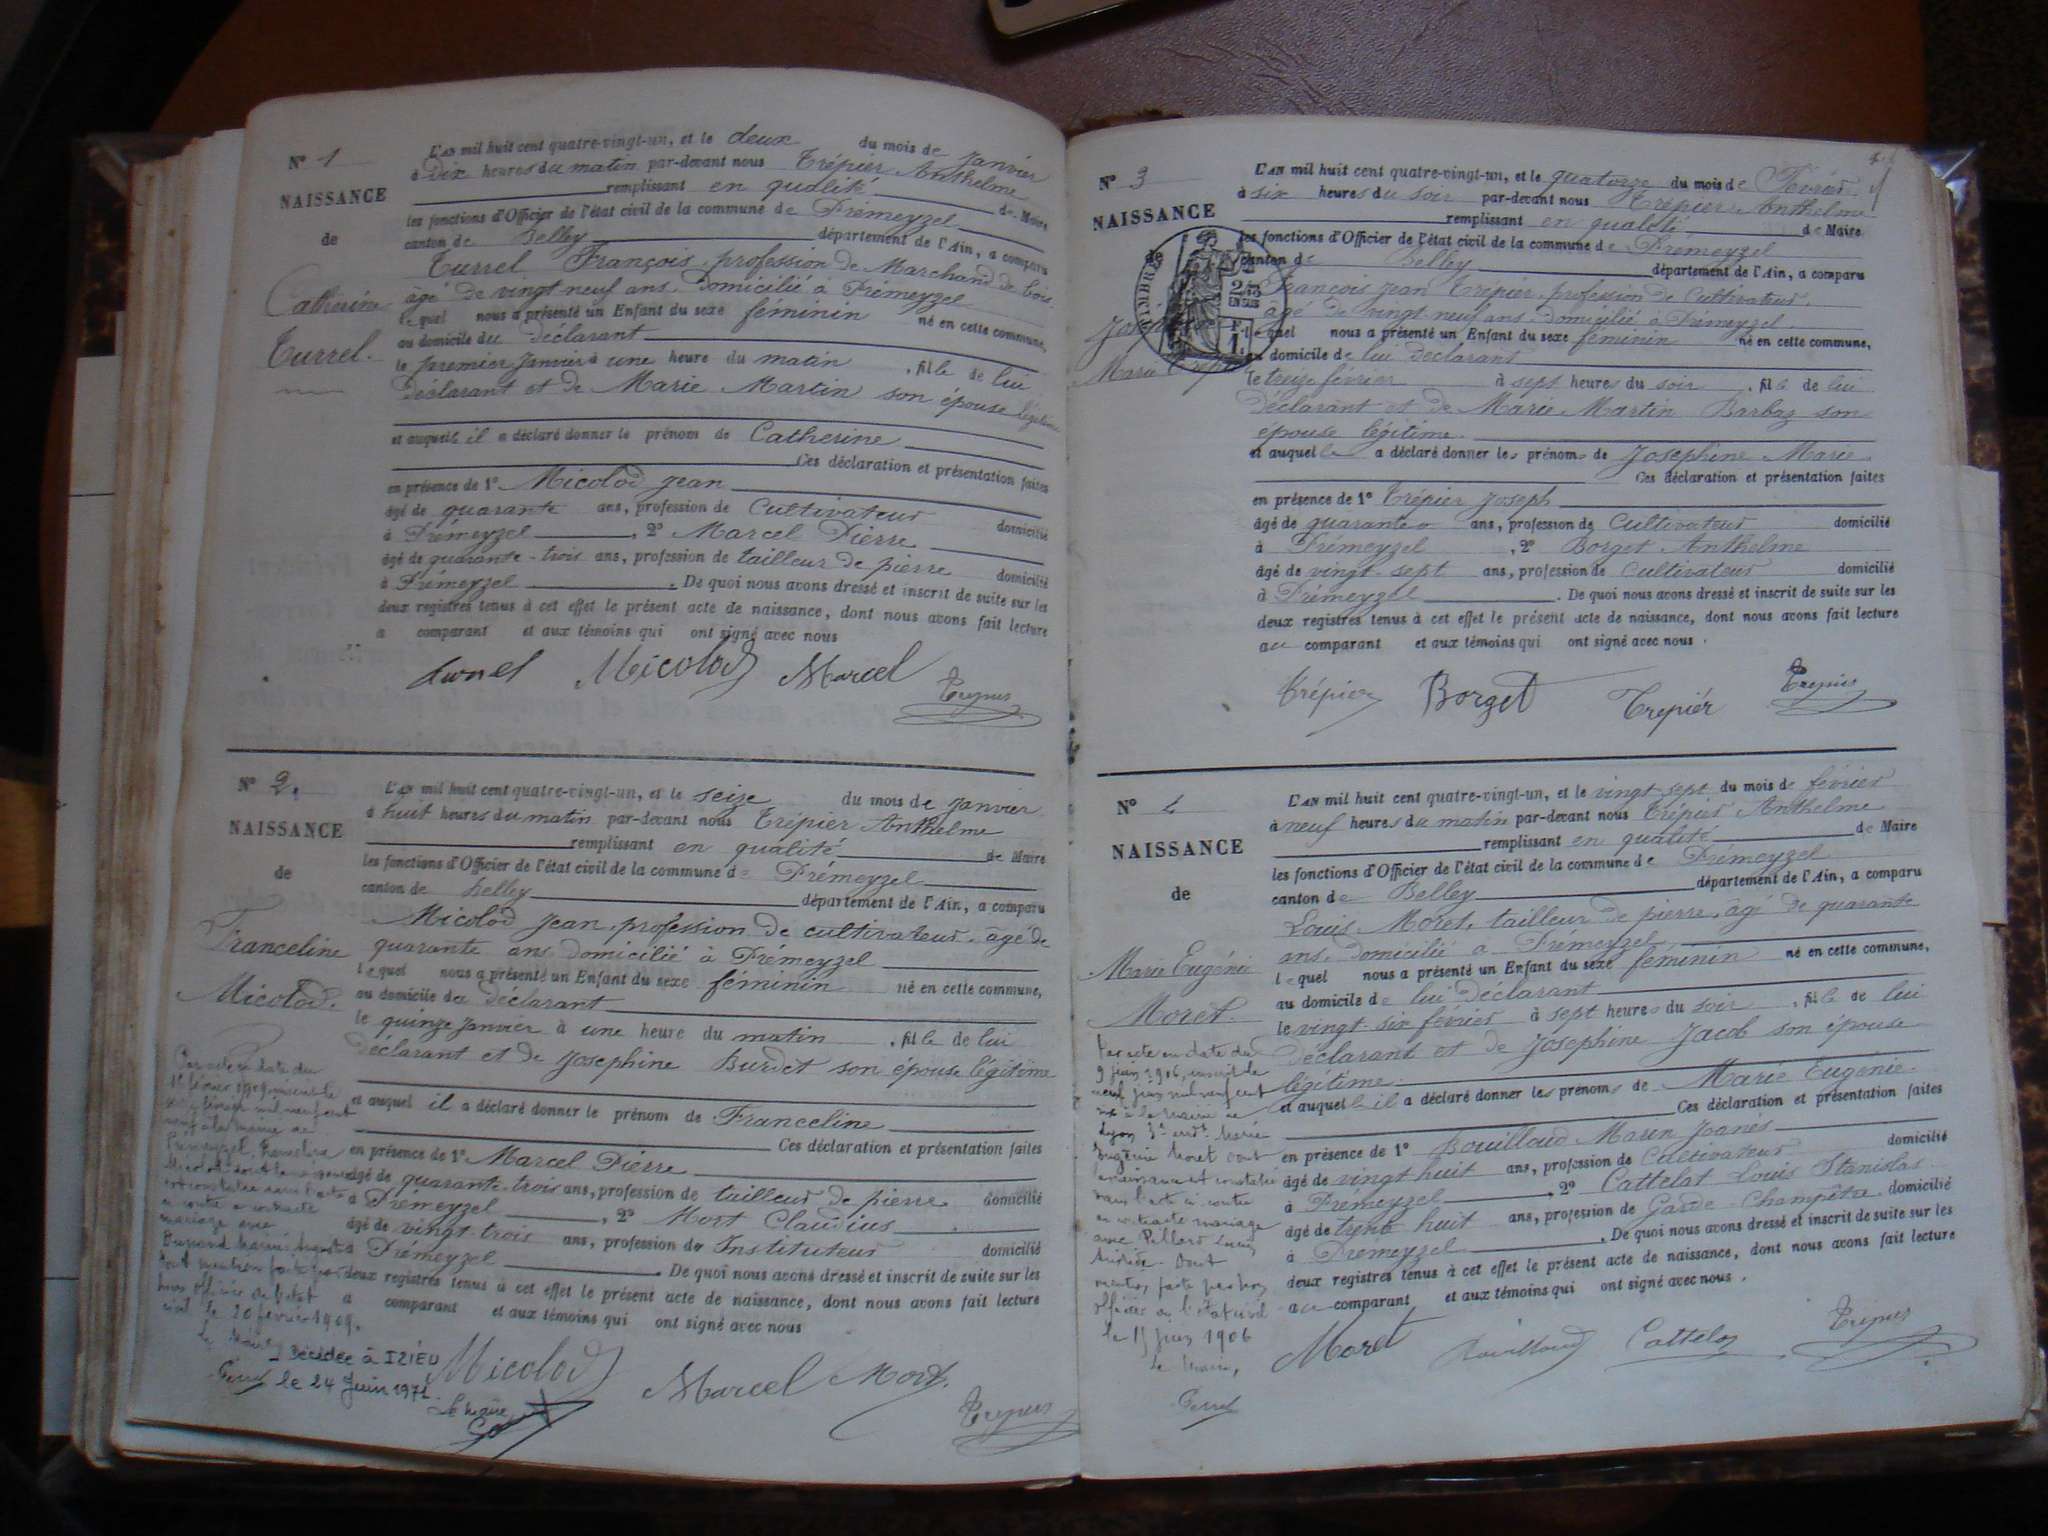 N° 1
NAISSANCE
de
Catherine
Turrel.
L'AN mil huit cent quatre-vingt-un, et le deux du mois de Janvier
à Dix heures du matin par-devant nous Trépier Anthelme
remplissant en qualité de Maire
les fonctions d'Officier de l'état civil de la commune de Prémeyzel
canton de Belley département de l'Ain, a comparu
Turrel François, profession de Marchand de bois
âgé de vingt neuf ans. Domicilié à Prémeyzel
lequel nous a présenté un Enfant du sexe féminin né en cette commune,
au domicile du déclarant
le premier Janvier à une heure du matin, fille de lui
Déclarant et de Marie Martin son épouse légitime
et auquel il a déclaré donner le prénom de Catherine
Ces déclaration et présentation faites
en présence de 1° Micolod Jean
âgé de quarante ans, profession de Cultivateur domicilié
à Prémeyzel, 2° Marcel Pierre
âgé de quarante-trois ans, profession de tailleur de pierre domicilié
à Prémeyzel. De quoi nous avons dressé et inscrit de suite sur les
deux registres tenus à cet effet le présent acte de naissance, dont nous avons fait lecture
a comparant et aux témoins qui ont signé avec nous
Micolod Marcel Trépier
N° 2.
NAISSANCE
de
Franceline
Micolod.
L'AN mil huit cent quatre-vingt-un, et le seize du mois de Janvier
à huit heures du matin par-devant nous Trépier Anthelme
remplissant en qualité de Maire
les fonctions d'Officier de l'état civil de la commune de Prémeyzel
canton de Belley département de l'Ain, a comparu
Micolod Jean, profession de cultivateur, âgé de
quarante ans domicilié à Prémeyzel
lequel nous a présenté un Enfant du sexe féminin né en cette commune,
au domicile du déclarant
le quinze Janvier à une heure du matin, fille de lui
Déclarant et de Josephine Burdet son épouse légitime
et auquel il a déclaré donner le prénom de Franceline
Ces déclaration et présentation faites
en présence de 1° Marcel Pierre
âgé de quarante-trois ans, profession de tailleur de pierre domicilié
à Prémeyzel, 2° Mort Claudius
âgé de vingt-trois ans, profession de Instituteur domicilié
à Prémeyzel. De quoi nous avons dressé et inscrit de suite sur les
deux registres tenus à cet effet le présent acte de naissance, dont nous avons fait lecture
a comparant et aux témoins qui ont signé avec nous
Micolod Marcel Mort. Trépier
Par acte en date du
février 1909, inscrit le
février mil neuf cent
neuf à la mairie de
Prémeyzel, Franceline
Micolod dont la naissance
est constatée dans l'acte
ci contre a contracté
mariage avec
Dont mention faite par
nous officier de l'état
civil le 20 février 1909.
Le Maire
Décédée à IZIEU
le 24 Juin 1971.
Le maire
N° 3
NAISSANCE
de
Marie Trépier
TIMBRE
2/10
EN SUS
1
L'AN mil huit cent quatre-vingt-un, et le quatorze du mois de Février
à six heures du soir par-devant nous Trépier Anthelme
remplissant en qualité de Maire
les fonctions d'Officier de l'état civil de la commune de Prémeyzel
canton de Belley département de l'Ain, a comparu
François Jean Trépier, profession de Cultivateur.
âgé de vingt neuf ans domicilié à Prémeyzel.
lequel nous a présenté un Enfant du sexe féminin né en cette commune,
au domicile de lui déclarant
le treize février à sept heures du soir, fille de lui
Déclarant et de Marie Martin Barbaz son
épouse légitime.
et auquel a déclaré donner les prénoms de Josephine Marie
Ces déclaration et présentation faites
en présence de 1° Trépier Joseph
âgé de quarante ans, profession de Cultivateur domicilié
à Prémeyzel, 2° Borget Anthelme
âgé de vingt-sept ans, profession de Cultivateur domicilié
à Prémeyzel. De quoi nous avons dressé et inscrit de suite sur les
deux registres tenus à cet effet le présent acte de naissance, dont nous avons fait lecture
au comparant et aux témoins qui ont signé avec nous.
Trépier Borget Trepiér Trépier
N° 4
NAISSANCE
de
Marie Eugénie
Moret.
L'AN mil huit cent quatre-vingt-un, et le vingt-sept du mois de février
à neuf heures du matin par-devant nous Trépier Anthelme
remplissant en qualité de Maire
les fonctions d'Officier de l'état civil de la commune de Prémeyzel
canton de Belley département de l'Ain, a comparu
Louis Moret, tailleur de pierre, âgé de quarante
ans. Domicilié à Prémeyzel
lequel nous a présenté un Enfant du sexe féminin né en cette commune,
au domicile de lui Déclarant
le vingt-six février à sept heures du soir, fille de lui
Déclarant et de Josephine Jacob son épouse
légitime.
et auquel il a déclaré donner les prénoms de Marie Eugénie.
Ces déclaration et présentation faites
en présence de 1° Bouilloud Marin Joanés
âgé de vingt huit ans, profession de Cultivateur domicilié
à Prémeyzel, 2° Cattelat Louis Stanislas
âgé de trente huit ans, profession de Garde-Champêtre domicilié
à Prémeyzel. De quoi nous avons dressé et inscrit de suite sur les
deux registres tenus à cet effet le présent acte de naissance, dont nous avons fait lecture
au comparant et aux témoins qui ont signé avec nous.
Moret Bouilloud Cattelat Trépier
Par acte en date du
9 juin 1906, inscrit le
neuf juin mil neuf cent
six à la mairie de
Lyon 3e arrdt Marie
Eugénie Moret dont
la naissance est constatée
dans l'acte ci-contre
a contracté mariage
avec
Dont
mention faite par nous
officier de l'état civil
le 15 juin 1906
Le Maire,